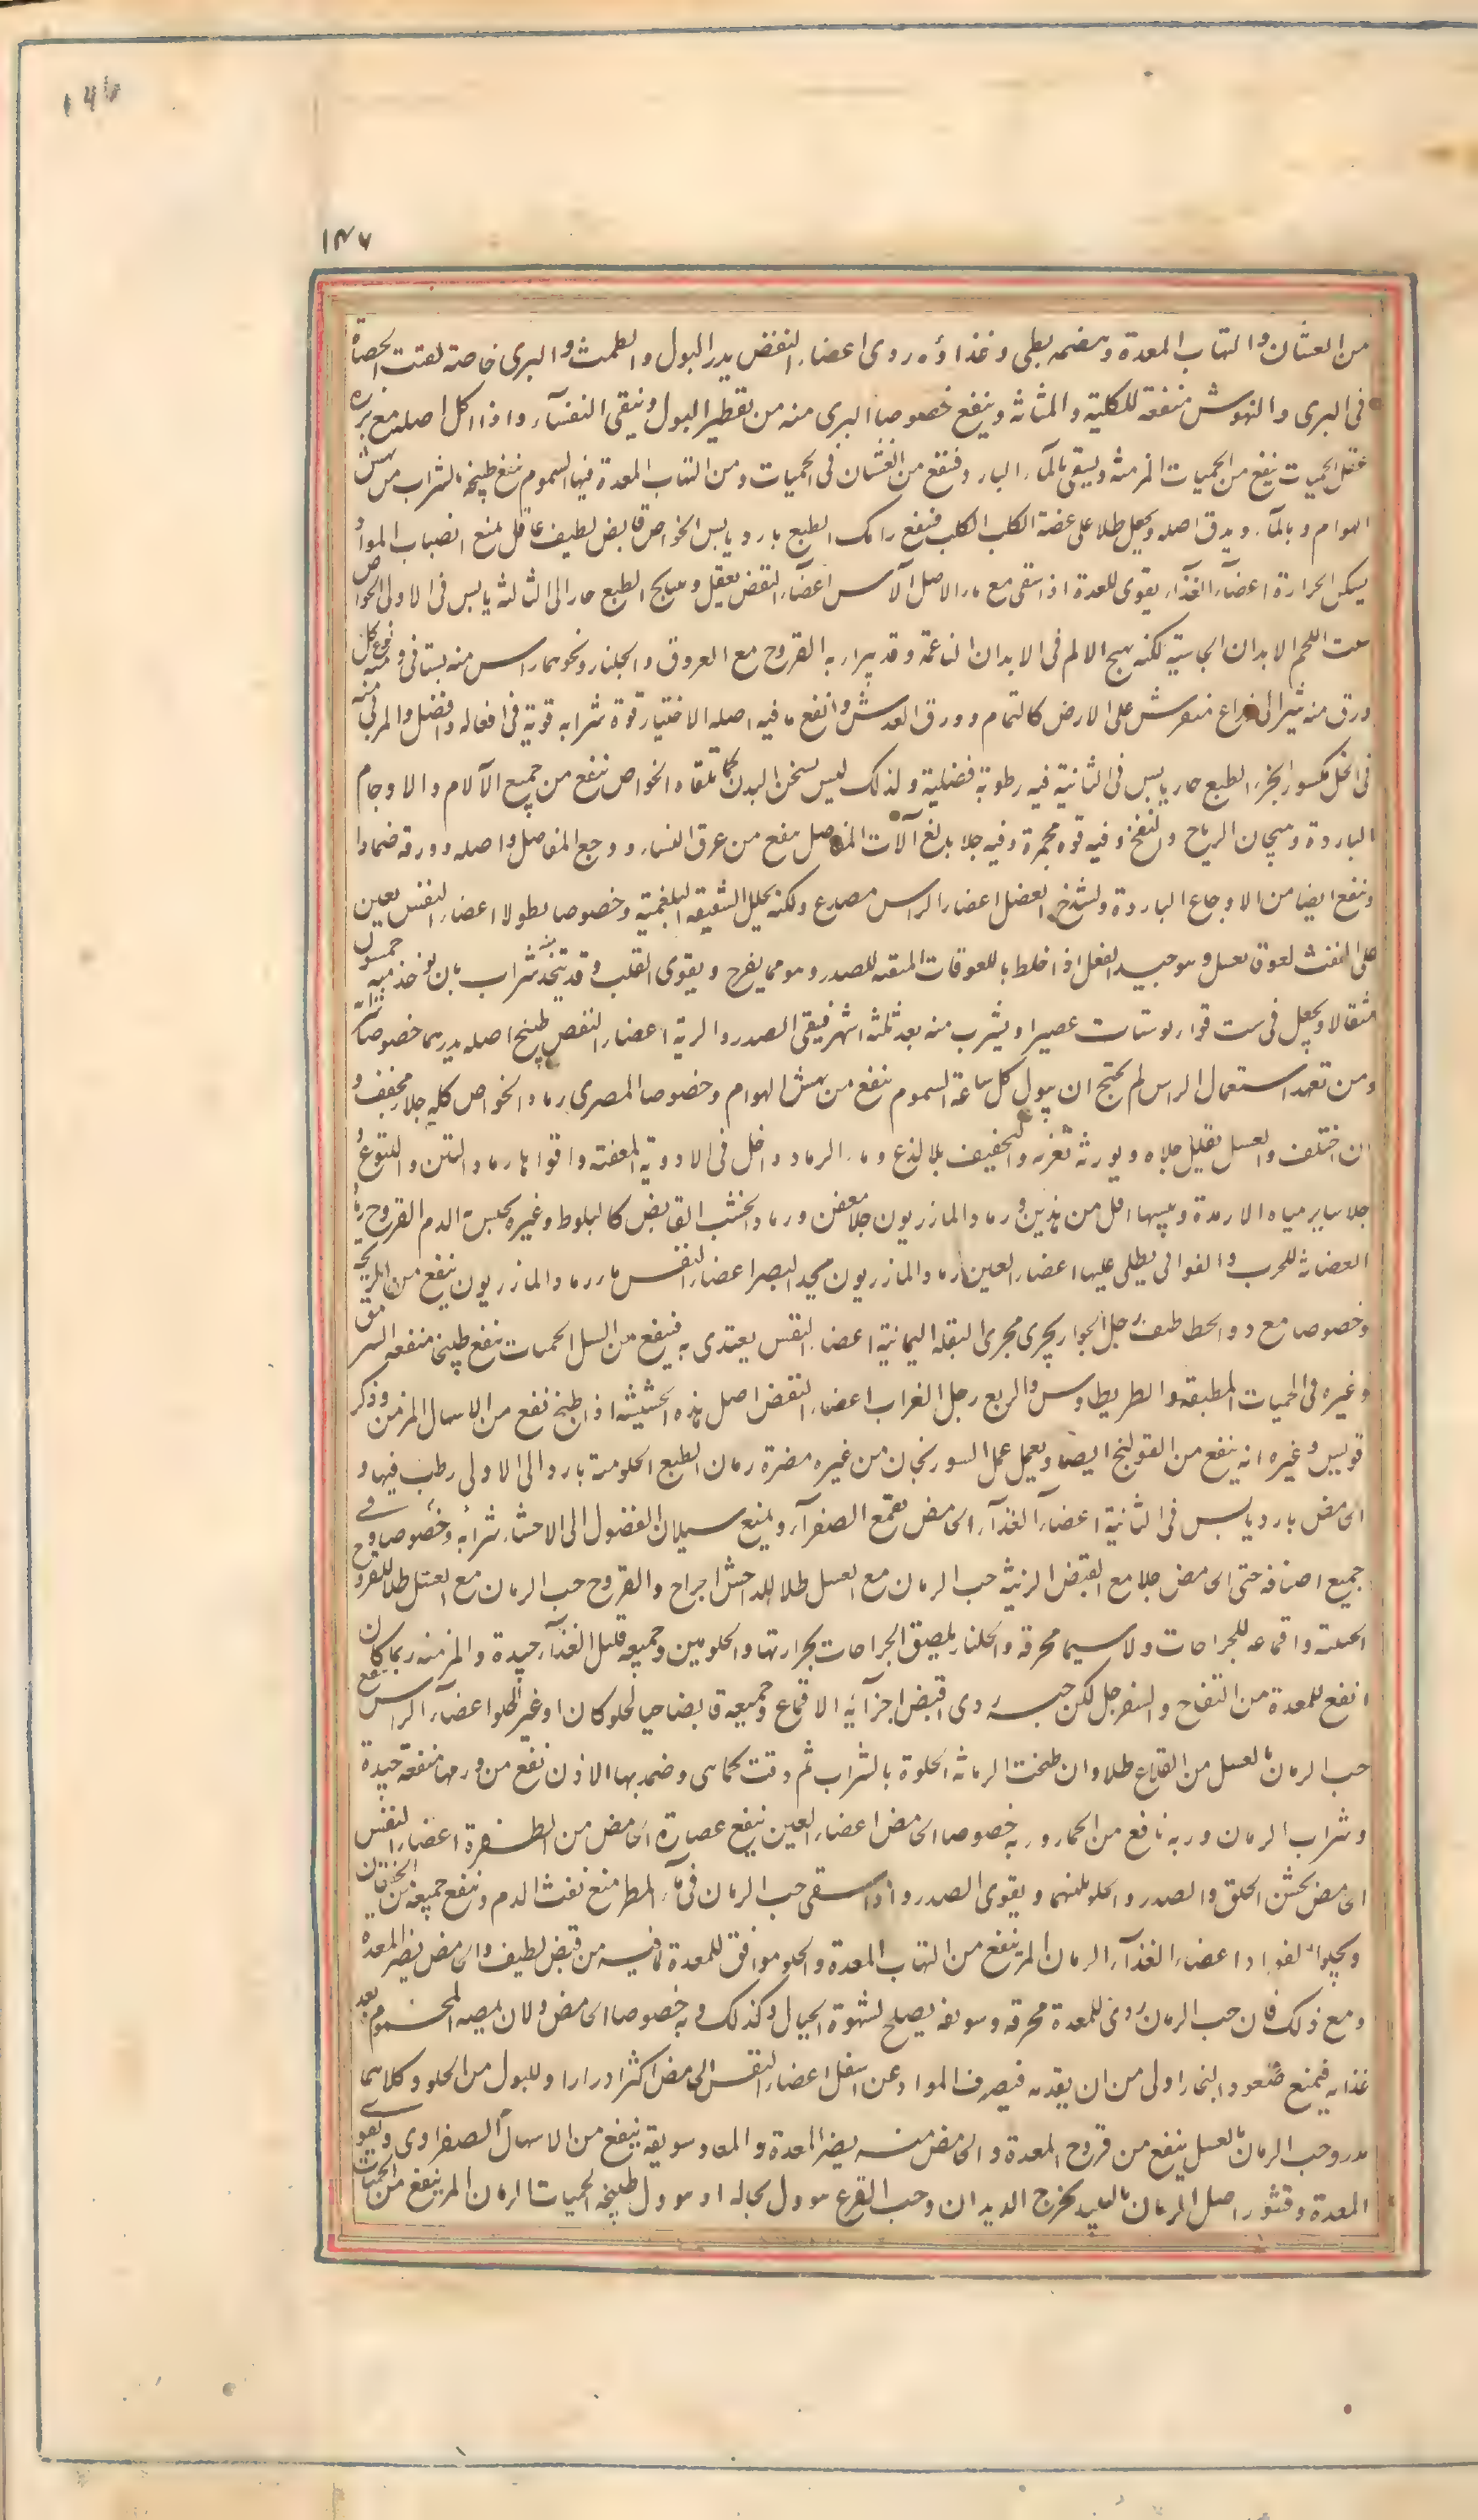 ١٤٧
من العثان والتهاب المعدة وهضمه بطى وغذاؤه ردى اعضاء النفض يدر البول والطمث والبرى خاصة لفتت الحصاة
فى البرى والنهوش منفعة للكلية والمثانة وينفع خصوصا البرى منه من تقطير البول وينقى النفساء واذا اكل اصله مع بزره
عقل الحميات ينفع من الحميات المزمنة ويسقى بالماء البارد فنفع من الغثيان فى الحميات ومن التهاب المعدة فيها السموم نفع طبيخه بالشراب من نهش
الهوام وبالماء ويدق اصله ويجعل طلا على عضة الكلب الكلب فنفع رامك الطبع بارد يابس الخواص قابض لطيف عاقل لمنع انصباب المواد
يسكن الحرارة اعضاء الغذاء يقوى للمعدة اذا سقى مع ماء الاصل الآس اعضاء النفض يعقل الطبع حار الى الثالثة يابس فى الاولى الخواص
اللحم الابدان الجاسية لكنه يهيج الالم فى الابدان الناعمة وقد يبرا به القروح مع العروق والجلنار ونحوها راسن منه بستانى ومنه نوع كل
ورق منه شبر الى ذراع منفرش على الارض كالتمام وورق العدس وانفع ما فيه اصله الاختيار قوة شرابه قوية فى افعاله وافضل والمربى منه
فى الخل مكسور الحر الطبع حار يابس فى الثانية فيه رطوبة فضلية ولذلك ليس يسخن البدن كما تلقاه الخواص ينفع من جميع الآلام والاوجاع
الباردة وهيجان الرياح والنفخ وفيه قوة محمرة وفيه جلا بالغ آلات المفاصل ينفع من عرق النساء ووجع المفاصل واصله وورقه ضمادا
وينفع ايضا من الاوجاع الباردة ولشدخ العضل اعضاء الراس مصدع ولكنه يحلل الشقيقة البلغمية وخصوصا نطولا اعضاء النفس يعين
على النفث لعوق بعسل وهو جيد الفعل اذا خلط باللعوقات المنقية للصدر وهو مما يفرح ويقوى القلب وقد يتخذ منه شراب بان يوخذ منه خمسون
مثقالا ويجعل فى ست عصيرا ويشرب منه بعد ثلثة اشهر فينقى الصدر والرية اعضاء النفض طبيخ اصله يدرهما خصوصا شرابه
ومن تعهد استعمال الراسن لم يحتج ان يبول كل ساعة السموم ينفع من نهش الهوام وخصوصا المصرى رماد الخواص كله جلاء مجفف و
ان اختلف والغسل يقلل جلاه ويورثه تغرية والتجفيف بلا لذع وماء الرماد داخل فى الادوية المعفنة واقواها رماد التين واليتوع و
جلا ساير مياه الارمدة ويبسها اقل من هذين ورماد المازريون جلا معفن ورماد الخشب القابض كالبلوط وغيره يحبس الدم القروح رماد
العضاة للجرب والقوابى يطلى عليها اعضاء العين رماد المازريون يحد البصر اعضاء النفس ماء رماد المازريون ينفع من المربحى
وخصوصا مع رجل الجوار يجرى مجرى البقلة اليمانية اعضاء النفس يغتذى به فينفع من السل الحميات ينفع طبيخا منفعة السرمق
وغيره فى الحميات المطبقة والطريطاوس والربع رجل الغراب اعضاء النفض اصل هذه الحشيشة اذا طبخ نفع من الاسهال المزمن وذكر
قوم وغيره انه ينفع من القولنج ايضا ويعمل عمل السورنجان من غيره مضرة رمان الطبع الحلو منه بارد الى الاولى رطب فيها و
الحامض بارد يابس فى الثانية اعضاء الغذاء الحامض يقمع الصفراء ويمنع سيلان الفضول الى الاحشاء شرابه وخصوصا وفى
جميع اصنافه حتى الحامض جلا مع القبض الزينة حب الرمان مع العسل طلا للداحس الجراح والقروح حب الرمان مع العسل طلا للقروح
الخبيثة واقماعه للجراحات ولاسيما محرقة والجلنار يلصق الجراحات بحرارتها والحلو ملين وجميعه قليل الغذاء جيدة والمز منه ربما كان
انفع للمعدة من التفاح والسفرجل لكن حبه ردى اقبض اجزائه الاقماع وجميعه قابضا حيا لحلو كان او غير الحلو اعضاء الراس ينفع
حب الرمان بالعسل من القلاع طلا وان طبخت الرمانة الحلوة بالشراب ثم دقت كماهى وضمد بها الاذن نفع من ورمها منفعة جيدة
وشراب الرمان وربه نافع من الخمار وربه خصوصا الحامض اعضاء العين ينفع عصارة الحامض من الظفرة اعضاء النفس
الحامض يخشن الحلق والصدر والحلو يلينهما ويقوى الصدر واذا سقى حب الرمان فى ماء المطر منع نفث الدم وينفع جميعه من الخفقان
ويجلو الفواد اعضاء الغذاء الرمان المز ينفع من التهاب المعدة والحلو موافق للمعدة لما فيه من قبض لطيف والحامض يضر المعدة
ومع ذلك فان حب الرمان ردى للمعدة محرقه وسويقه يصلح لشهوة الحبالى وكذلك ربه خصوصا الحامض ولان يمصه المحموم بعد
غذايه فيمنع صعود البخار اولى من ان يقدمه فيصرف المواد عن اسفل اعضاء النفس الحامض اكثر ادرارا وللبول من الحلو وكلاهما
يدر وحب الرمان بالعسل ينفع من قروح المعدة والحامض منه يضر المعدة والمعا وسويقه ينفع من الاسهال الصفراوى ويقوى
المعدة وقشور اصل الرمان بالنبيذ يخرج الديدان وحب القرع بحاله او طبيخه الحميات الرمان المز ينفع من الحميات